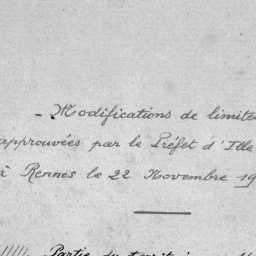 - Modifications de limite
approuvées par le Préfet d'Ille
à Rennes le 22 Novembre 19
Partie du territoire